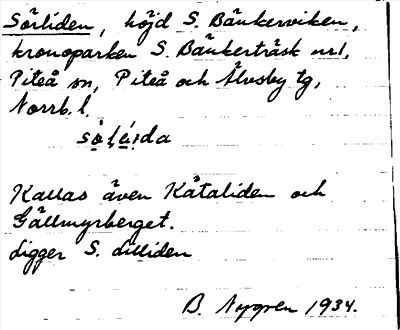 Sörliden, höjd S. Bänkerviken,
kronoparken S. Bänkerträsk nr1,
Piteå sn, Piteå och Älvsby tg,
Norrb. l.
Kallas även Kåtaliden och
Gällmyrberget.
Ligger S. Lilliden
B. Nygren 1934.